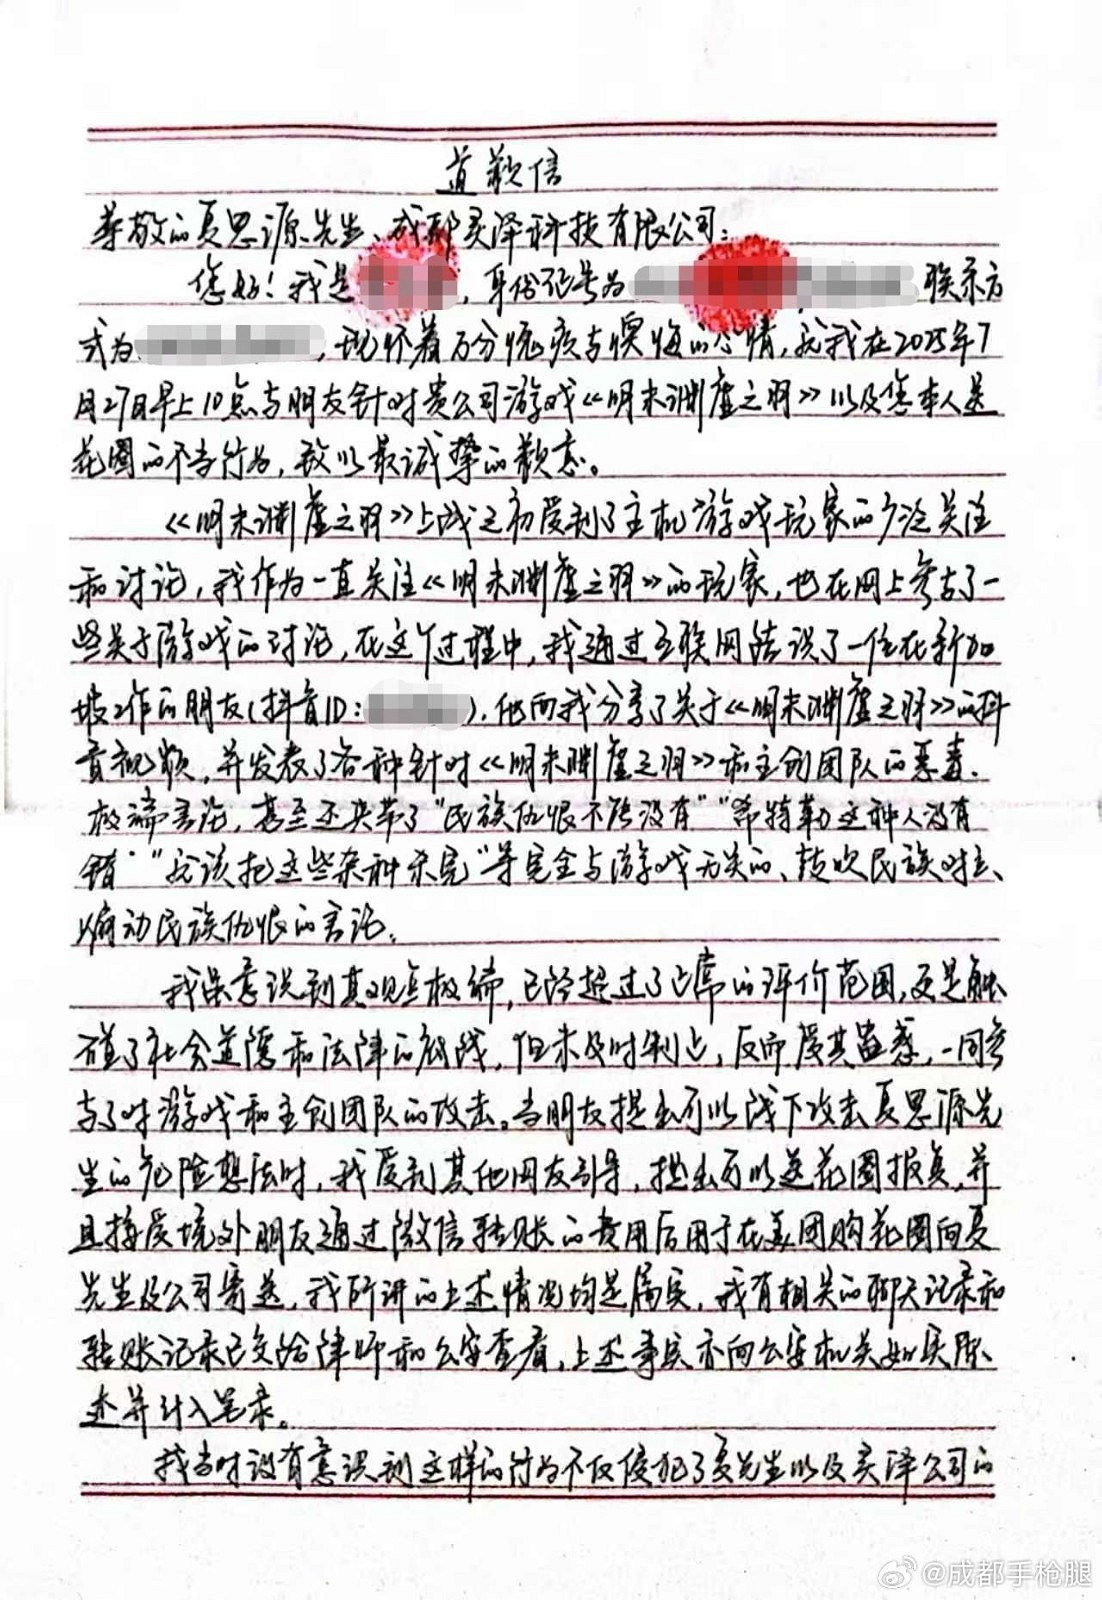 道歉信
尊敬的夏思源先生、成都灵泽科技有限公司:
您好!我是，身份证号为 联系方
式为，现怀着万分愧疚与懊悔的心情，就我在2025年7
月27日早上10点与朋友针对贵公司游戏《明末渊虚之羽》以及您本人送
花圈的不当行为，致以最诚挚的歉意。
《明末渊虚之羽》上线之初受到了主机游戏玩家的广泛关注
和讨论，我作为一直关注《明末渊虚之羽》的玩家，也在网上参与了一
些关于游戏的讨论，在这个过程中，我通过互联网结识了一位在新加
坡工作的朋友(抖音ID:)，他向我分享了关于《明末渊虚之羽》的抖
音视频，并发表了各种针对《明末渊虚之羽》和主创团队的恶毒、
极端言论，甚至还夹带了“民族仇恨不能没有”“希特勒这种人没有
错”“应该把这些杂种杀完”等完全与游戏无关的、鼓吹民族对立、
煽动民族仇恨的言论。
我虽意识到其观点极端，已经超过了正常的评价范围，更是触
碰了社会道德和法律的底线，但未及时制止，反而受其蛊惑，一同参
与了对游戏和主创团队的攻击。当朋友提出可以线下攻击夏思源先
生的危险想法时，我受到其他网友引导，提出可以送花圈报复，并
且接受境外朋友通过微信转账的费用后用于在美团购花圈向夏
先生及公司寄送，我所讲的上述情况均是属实，我有相关的聊天记录和
转账记录已交给律师和公安查看，上述事实亦向公安机关如实陈
述并计入笔录。
我当时没有意识到这样的行为不仅侵犯了夏先生以及灵泽公司的
@成都手枪腿